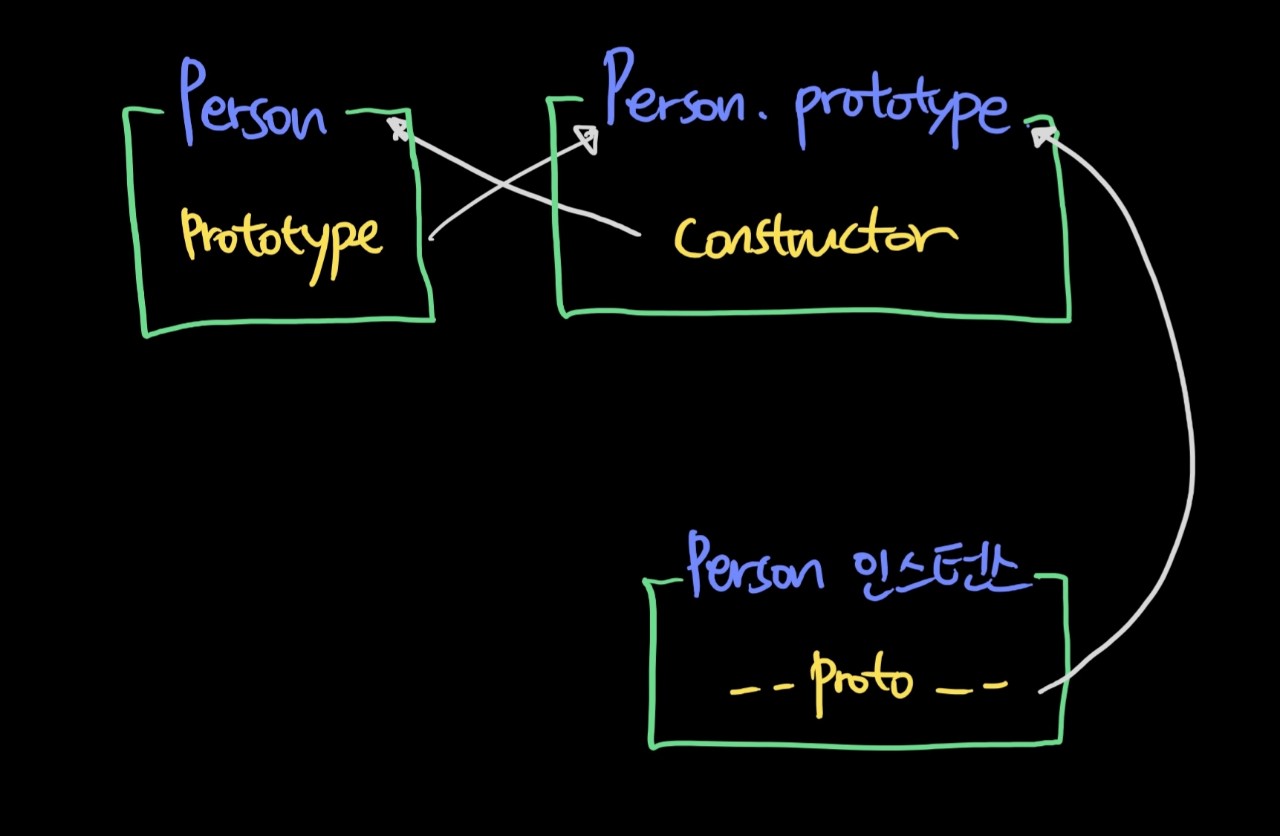 Person
Prototype
Person. prototype
Constructor
Person 인스턴스
-- proto --